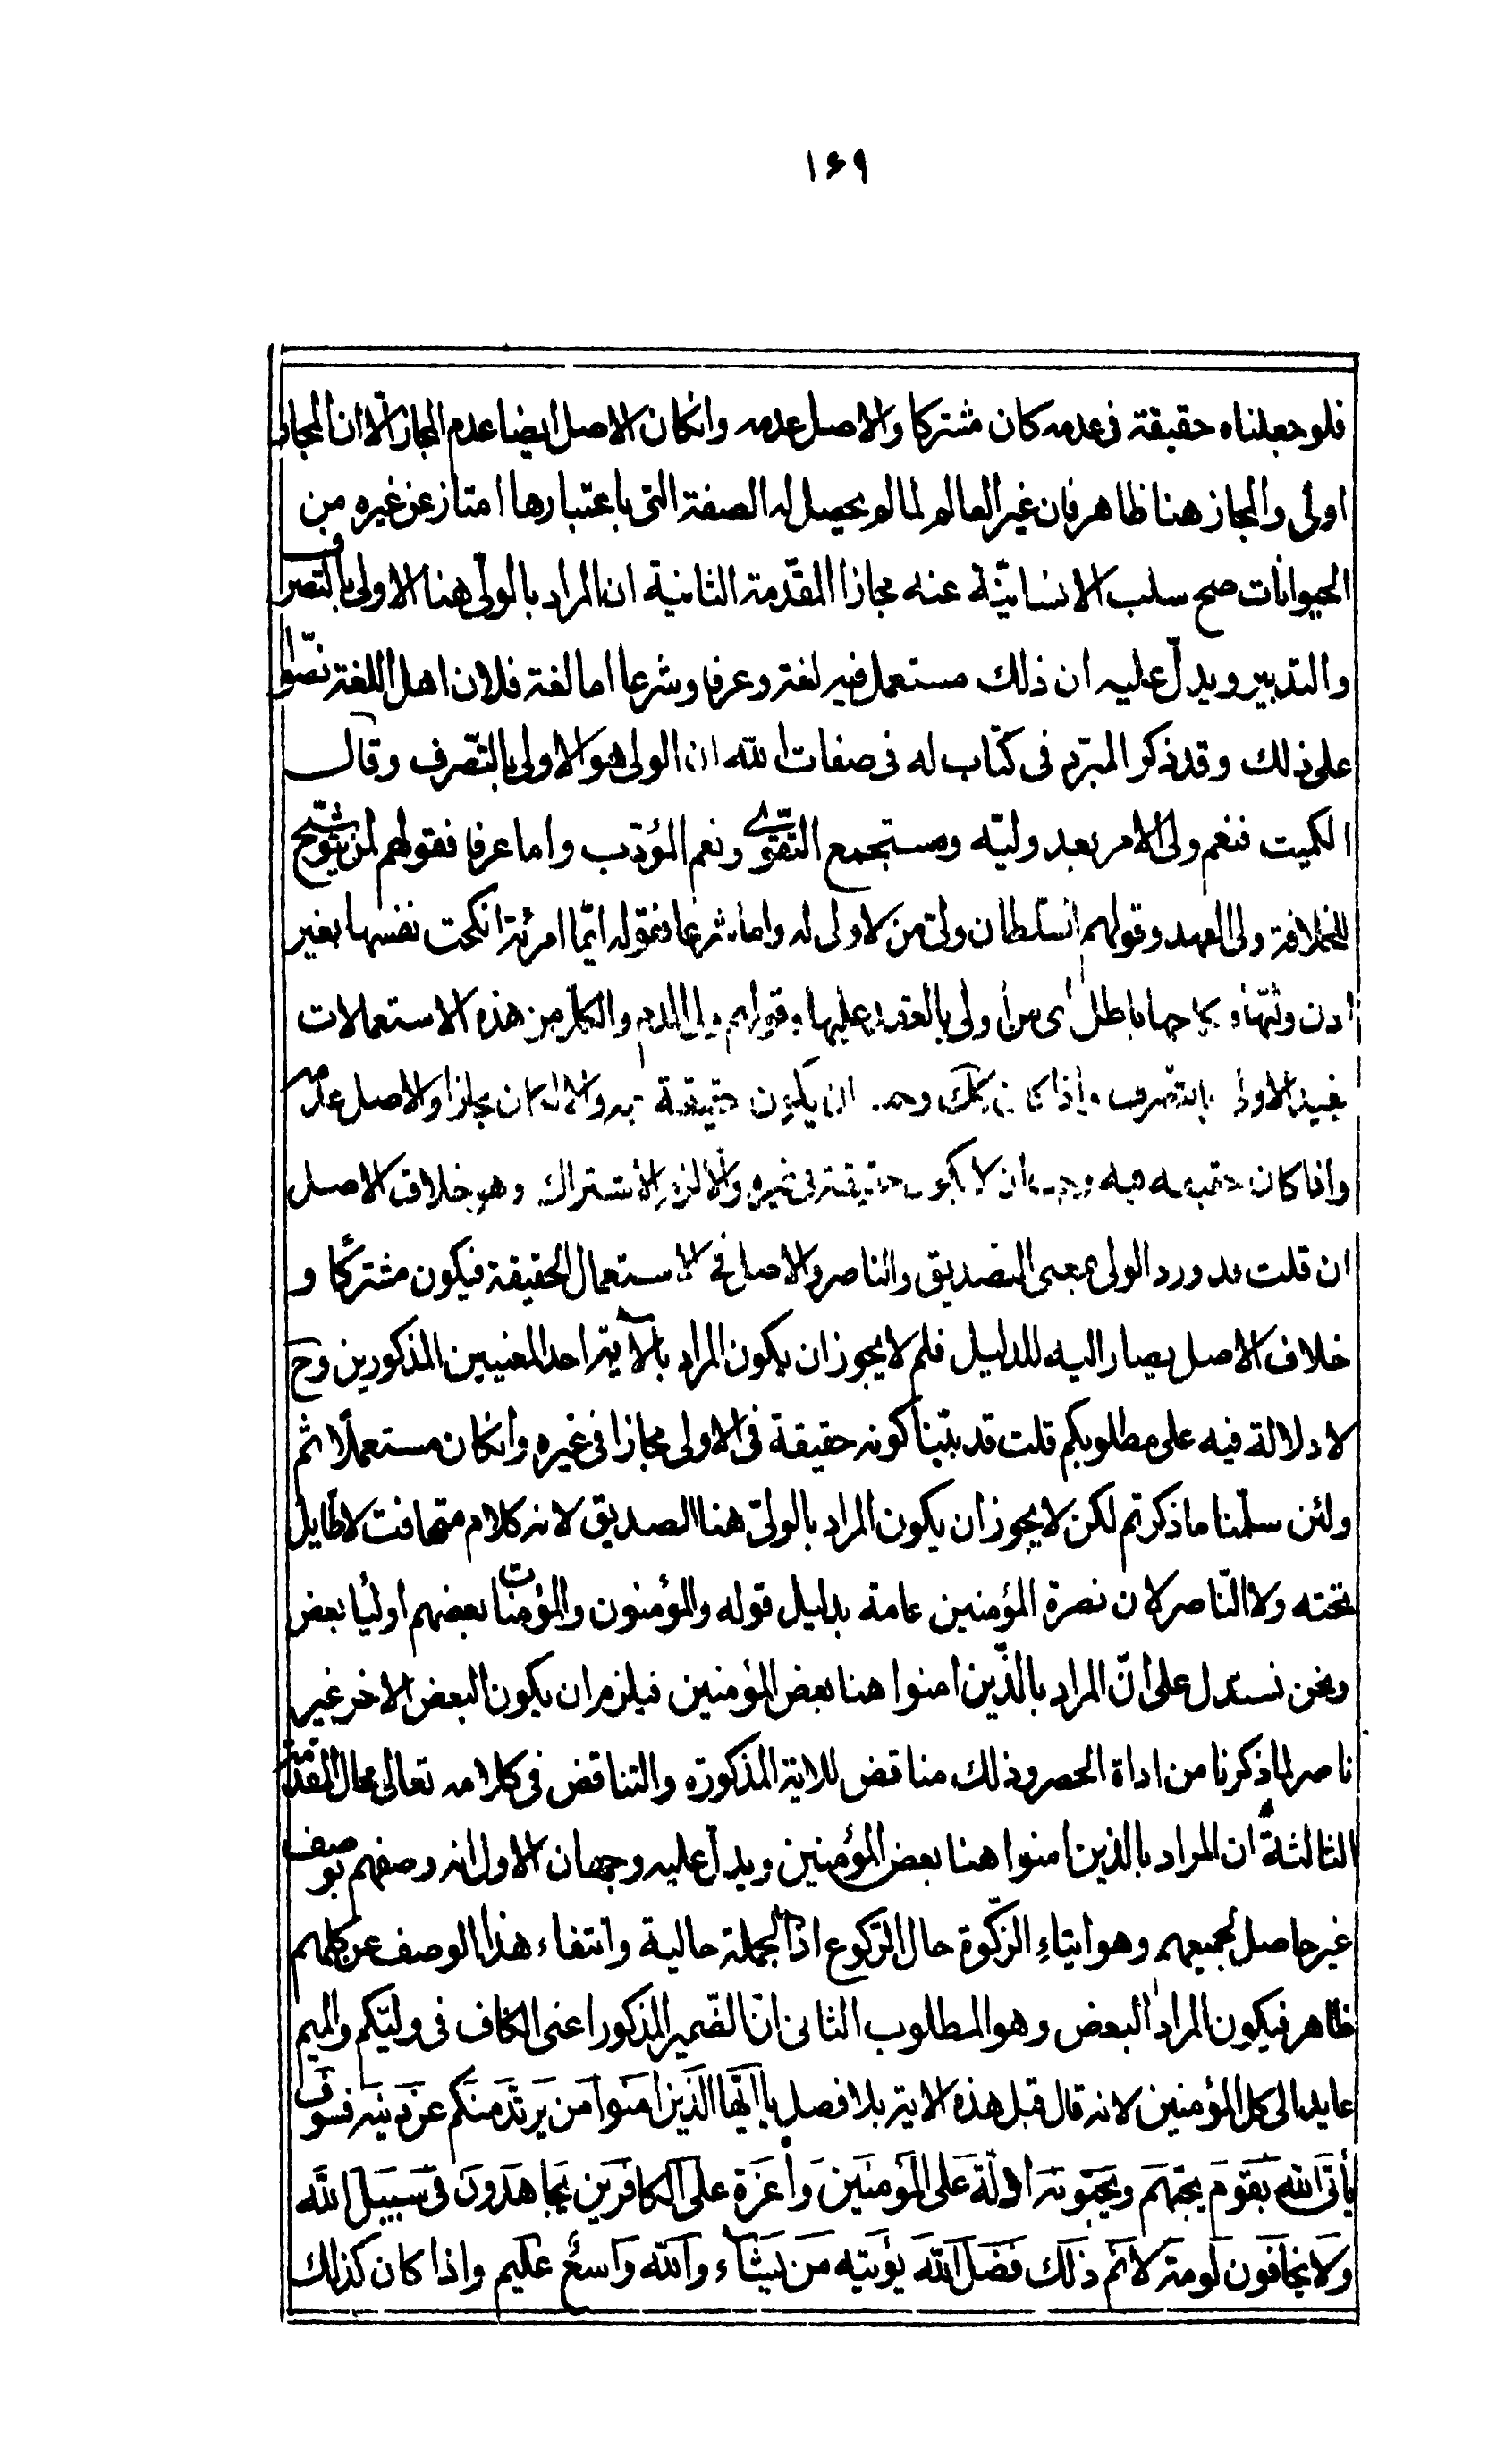 ۱۶۹
فلو جعلناه حقيقة فى عدمه كان مشتركا والاصل عدمه وانكان الاصل ايضا عدم المجاز الّا ان المجاز
اولى والمجاز هنا ظاهر فان غير العالم لما لم يحصل له الصفة التى باعتبارها امتاز عن غيره من
الحيوانات صح سلب الانسانيّة عنه مجازا المقدّمة الثانية ان المراد بالولّى هنا الاولى بالتصرف
والتدبير ويدلّ عليه ان ذلك مستعمل فيه لغة وعرفا وشرعا اما لغة فلان اهل اللغة نصّوا
على ذلك وقد ذكر المبرّد فى كتاب له فى صفات الله ان الولى هو الاولى بالتّصرف وقال
الكميت فنعم ولى الامر بعد وليّه ومستجمع التقوى ونعم المؤدّب واما عرفا فقولهم لمن يترشح
للخلافة ولى العهد وقولهم السّلطان ولى من لا ولى له واما شرعا فقوله ايّما امرئة انكحت نفسها بغير
اذن وليّها فنكاحها باطل اى من اولى بالعقد عليها وقولهم ولى الدم والكل من هذه الاستعمالات
يفيد الاولى بالتصرف واذا كان كذلك وجب ان يكون حقيقة فيه والا لكان مجازا والاصل عدمه
واذا كان حقيقة فيه وجب ان لا يكون حقيقة فى غيره والّا لزم الاشتراك وهو خلاف الاصل
ان قلت قد ورد الولى بمعنى الصديق والناصر والاصل فى الاستعمال الحقيقة فيكون مشتركًا و
خلاف الاصل يصار اليه للدليل فلم لا يجوز ان يكون المراد بالآية احد المعنيين المذكورين وح
لا دلالة فيه على مطلوبكم قلت قد بيّنا كونه حقيقة فى الاولى مجازا فى غيره وانكان مستعملًا ثم
ولئن سلّمنا ما ذكرتم لكن لا يجوز ان يكون المراد بالولىّ هنا الصديق لانه كلام متهافت لا طايل
تحته ولا النّاصر لان نصرة المؤمنين عامة بدليل قوله والمؤمنون والمؤمنات بعضهم اولياء بعض
ونحن نستدل على انّ المراد بالّذين امنوا هنا بعض المؤمنين فيلزم ان يكون البعض الاخر غير
ناصر لما ذكرنا من اداة الحصر وذلك مناقض للاية المذكورة والتناقض فى كلامه تعالى محال المقدمة
الثالثة ان المراد بالذين امنوا هنا بعض المؤمنين ويدل عليه وجهان الاول انه وصفهم بوصف
غير حاصل لجميعهم وهو ايتاء الزّكوة حال الرّكوع اذ الجملة حالية وانتفاء هذا الوصف عن كلهم
ظاهر فيكون المراد البعض وهو المطلوب الثانى انّ الضّمير المذكور اعنى الكاف فى وليّكم والميم
عايد الى كل المؤمنين لانه قال قبل هذه الاية بلا فصل يا ايّها الّذين امنوا من يرتدّ منكم عن دينه فسوف
يأتى الله بقوم يحبّهم ويحبّونه اذلّة على المؤمنين واعزّة على الكافرين يجاهدون فى سبيل اللّه
ولا يخافون لومة لائم ذلك فضل الله يؤتيه من يشاء والله واسعٌ عليم واذا كان كذلك